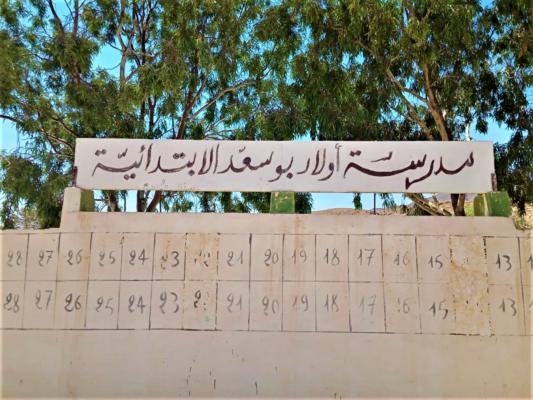 مدرسة أولاد بوسعد الابتدائية
28 27 26 25 24 23 22 21 20 19 18 17 16 15 13
28 27 26 25 24 23 2 21 20 19 18 17 16 15 13